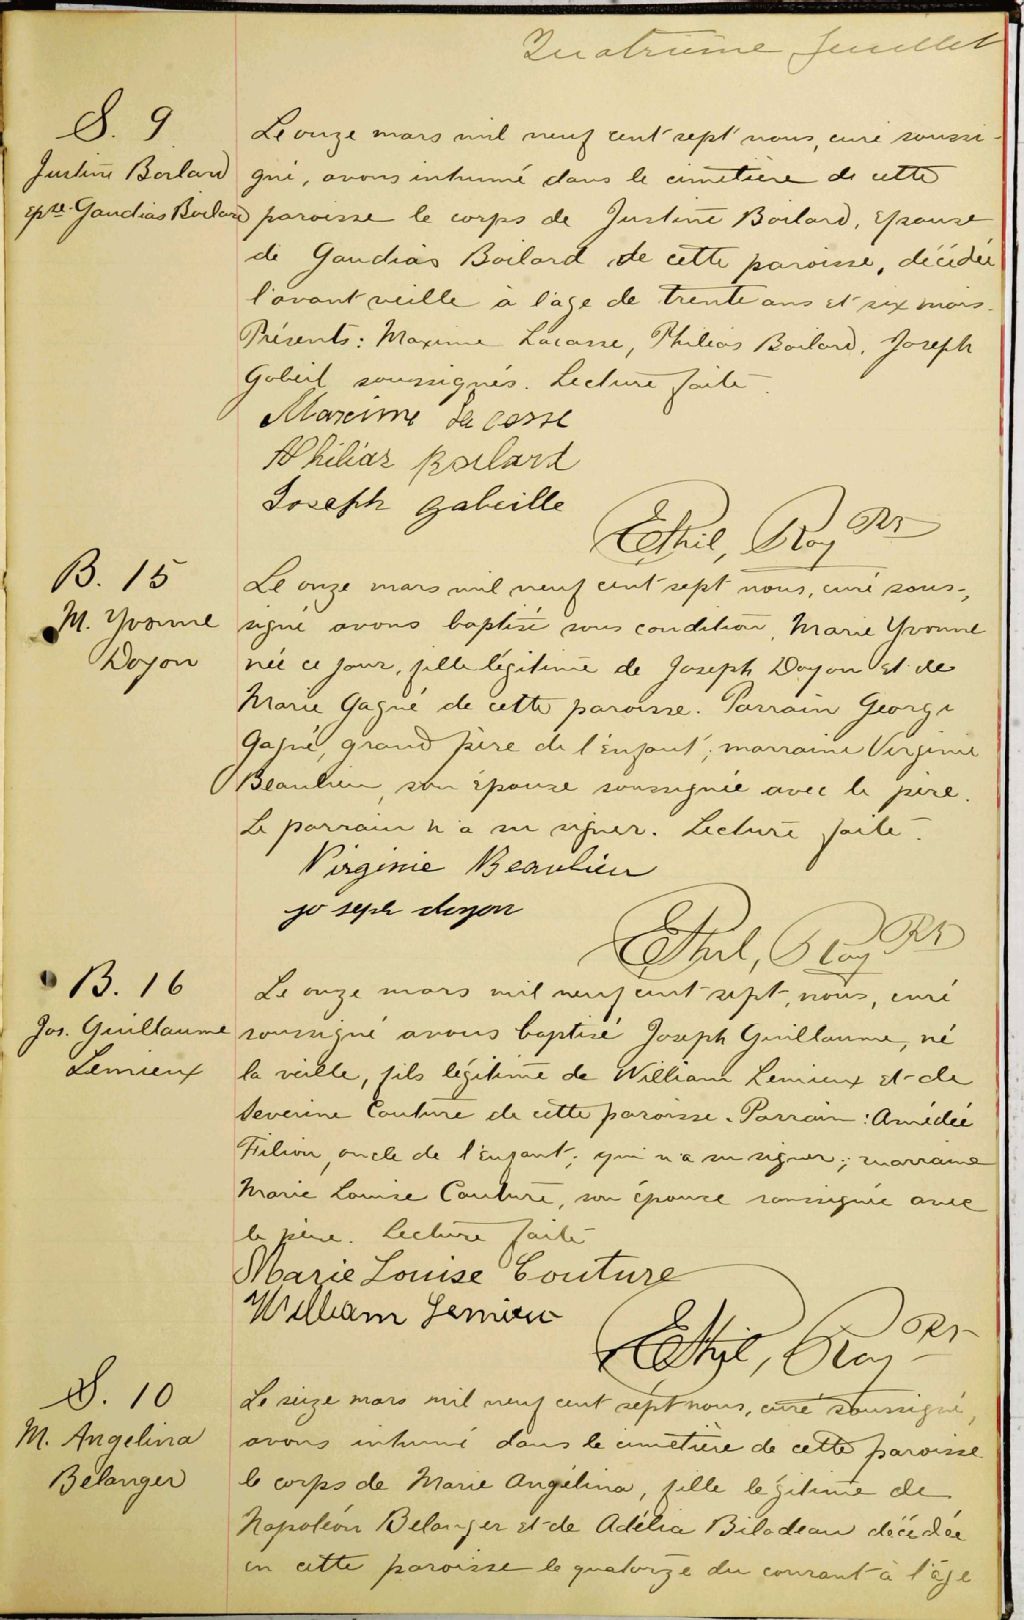 Quatrième feuillet
S. 9
Justine Boilard
epse. Gaudias Boilard
Le onze mars mil neuf cent sept nous, curé soussi-
gné, avons inhumé dans le cimetière de cette
paroisse le corps de Justine Boilard, Epouse
de Gaudias Boilard de cette paroisse, décédée
l'avant veille à l'âge de trente ans et six mois.
Présents: Maxime Lacasse, Philias Boilard, Joseph
Gobeil soussignés. Lecture faite.
Maxime Lacasse
Philias Boilard
Joseph Gabeille
EPhil, Roy Ptr
B. 15
M. Yvonne
Doyon
Le onze mars mil neuf cent sept nous, curé sous-,
signé avons baptisé sous condition, Marie Yvonne
née ce jour, fille légitime de Joseph Doyon et de
Marie Gagné de cette paroisse. Parrain George
Gagné, grand père de l'enfant; marraine Virginie
Beaulieu, son épouse soussignée avec le père.
Le parrain n'a su signer. Lecture faite.
Virginie Beaulieu
joseph doyon
EPhil, Roy Ptr
B. 16
Jos. Guillaume
Lemieux
Le onze mars mil neuf cent sept, nous, curé
soussigné avons baptisé Joseph Guillaume, né
la veille, fils légitime de William Lemieux et de
Severine Couture de cette paroisse. Parrain: Amédée
Filion, oncle de l'enfant; qui n'a su signer; marraine
Marie Louise Couture, son épouse soussignée avec
le père. Lecture faite
Marie Louise Couture
William Lemieu
EPhil, Roy Ptr
S. 10
M. Angelina
Belanger
Le seize mars mil neuf cent sept nous, curé soussigné,
avons inhumé dans le cimetière de cette paroisse
le corps de Marie Angélina, fille légitime de
Napoléon Belanger et de Adélia Bilodeau décédée
en cette paroisse le quatorze du courant à l'âge